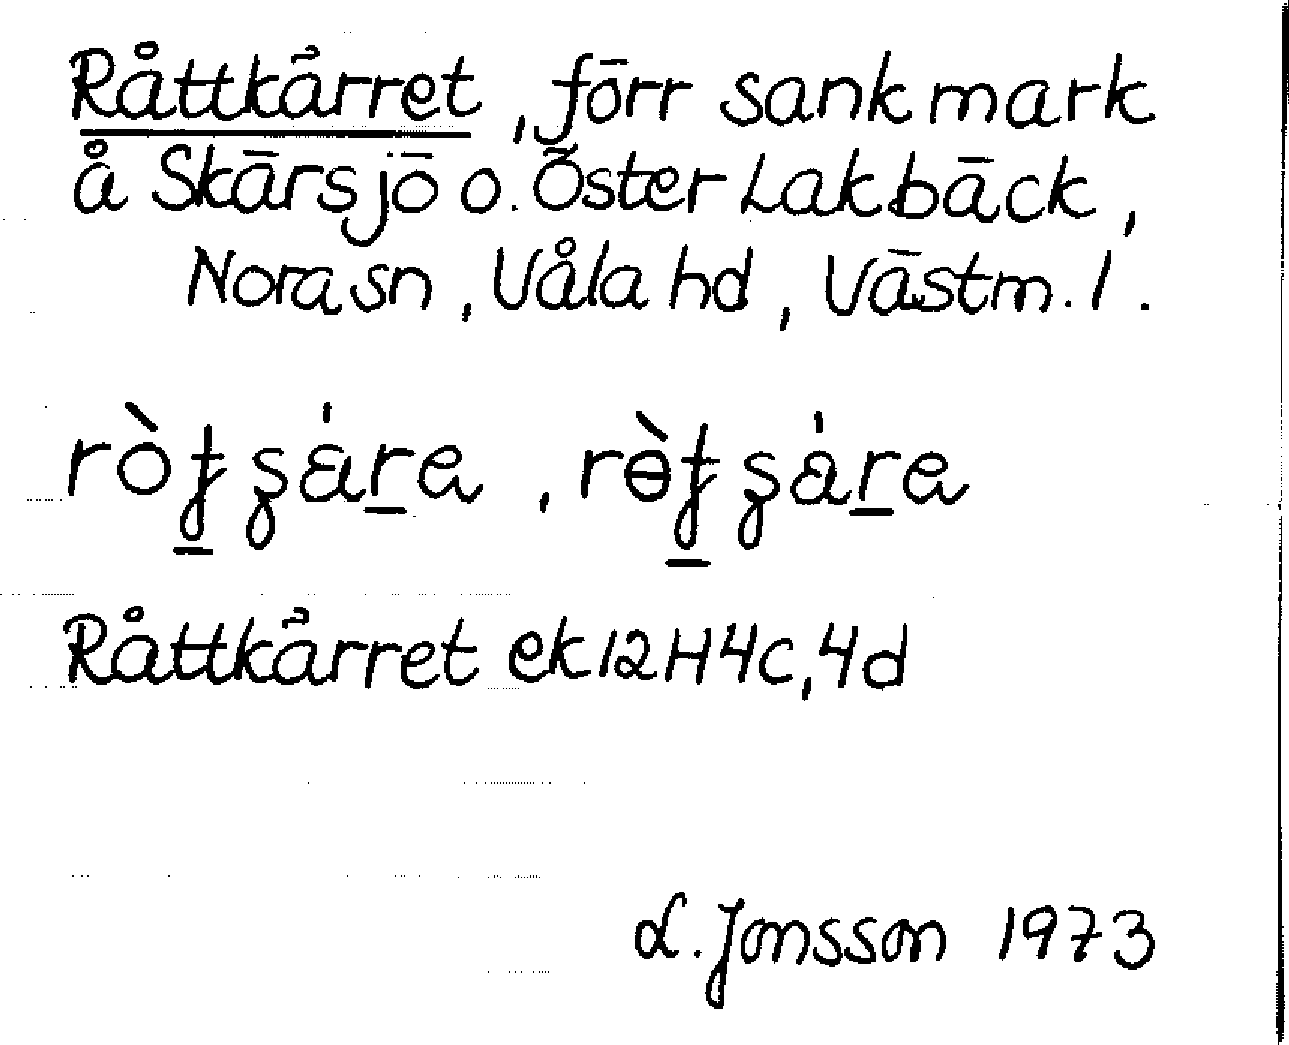 Råttkärret, förr sankmark
å Skärsjö o. Öster Lakbäck,
Nora sn, Våla hd, Västm. l.
Råttkärret ek 12H4c,4d
L. Jonsson 1973